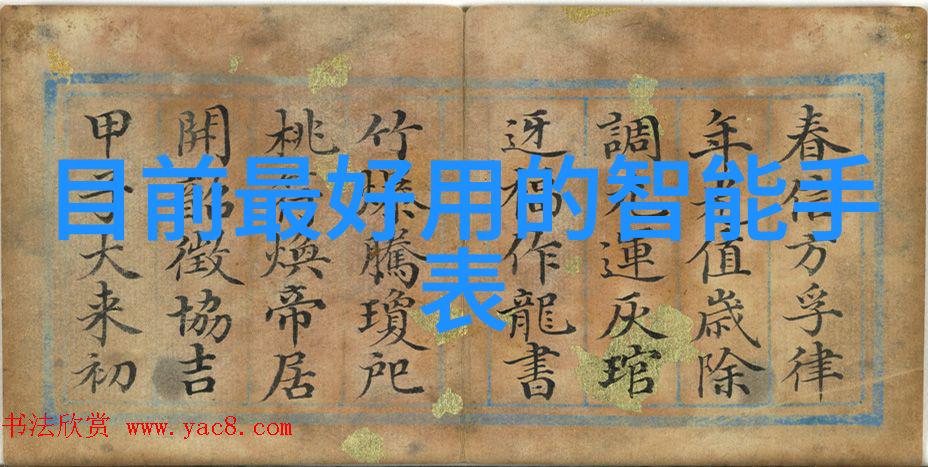 目前最好用的智能手
表
春信方孚律
年值歲除
調運灰琯
迓福作龍書
竹爆騰瓊
桃煥帝居
開韶徵協吉
甲子大来初
书法欣赏 www.yac8.com